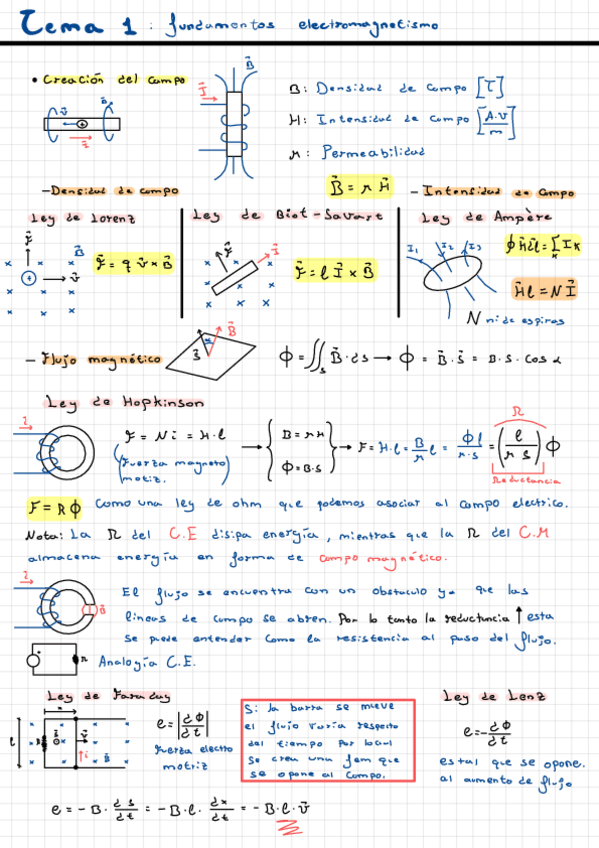 Tema 1 : fundamentos electromagnetismo
• Creación del campo
B⃗
I⃗
B: Densidad de campo [T]
H: Intensidad de campo [A.v/m]
μ: Permeabilidad
B⃗ = μ H⃗
- Densidad de campo
- Intensidad de campo
Ley de Lorenz
Ley de Biot-Savart
Ley de Ampère
F⃗ = q v⃗ x B⃗
F⃗ = l I⃗ x B⃗
I1 I2 I3
∮ H⃗ dl⃗ = Σ Ik
k
H⃗l = N I⃗
N nº de espiras
- Flujo magnético
S⃗ α B⃗
Φ = ∬s B⃗ · ds → Φ = B⃗ · S⃗ = B · S · cos α
Ley de Hopkinson
i
F = N i = H · l → { B = μH Φ = B·S } → F = H·l = B/μ l = Φl/μ·s = (l/μs) Φ
R
(fuerza magneto motriz.)
Reductancia
F = R Φ Como una ley de ohm que podemos asociar al campo electrico.
Nota: La R del C.E disipa energía, mientras que la R del C.M
almacena energía en forma de campo magnético.
i
B⃗
El flujo se encuentra con un obstaculo ya que las
lineas de campo se abren. Por lo tanto la reductancia ↑ esta
se puede entender como la resistencia al paso del flujo.
Analogía C.E.
Ley de Faraday
e = |dΦ/dt|
fuerza electro
motriz
Si la barra se mueve
el flujo varía respecto
del tiempo por lo cual
se crea una fem que
se opone al campo.
Ley de Lenz
e = - dΦ/dt
es tal que se opone.
al aumento de flujo
e = - B · ds/dt = - B · l · dx/dt = - B · l · v⃗